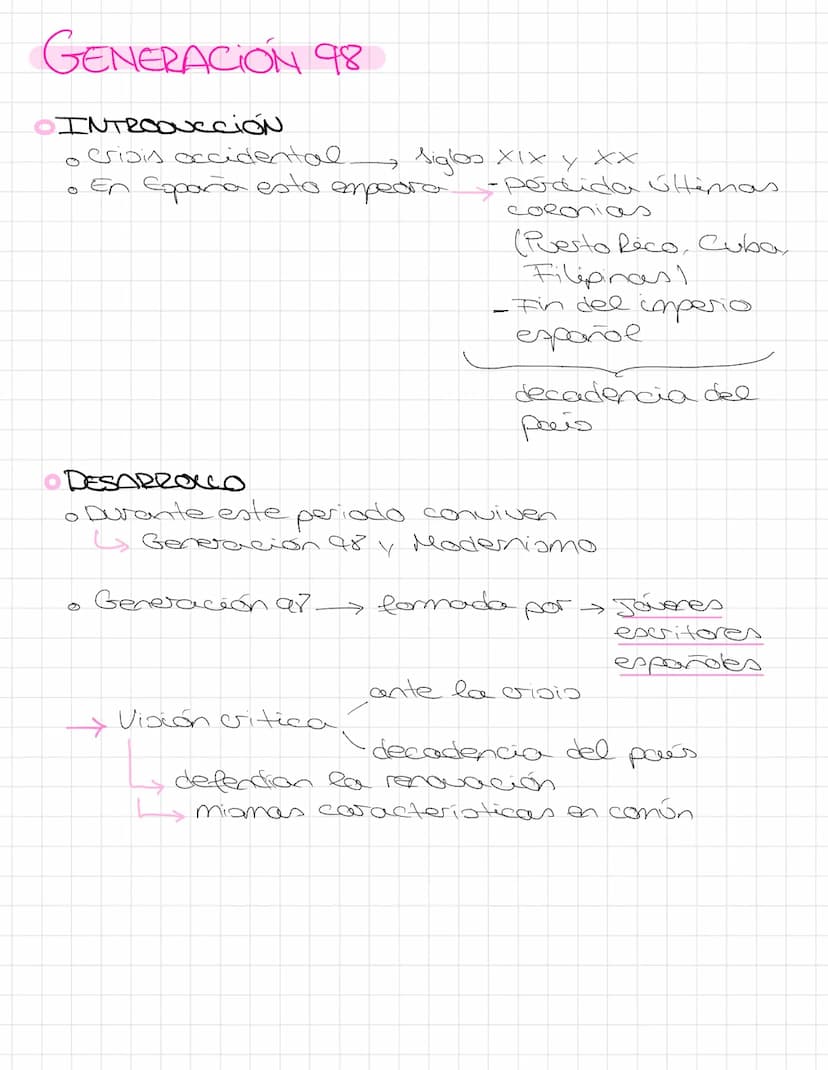 GENERACIÓN 98
INTRODUCCIÓN
Crisis occidental → siglos XIX y XX
En España esto empeora → - pérdida últimas
colonias
(Puerto Rico, Cuba,
Filipinas)
- Fin del imperio
español
decadencia del
país
DESARROLLO
Durante este periodo conviven
↳ Generación 98 y Modernismo
Generación 98 → formada por → Jóvenes
escritores
españoles
ante la crisis
→ Visión critica
decadencia del país
↳ defendian la renovación
↳ mismas caracteristicas en común